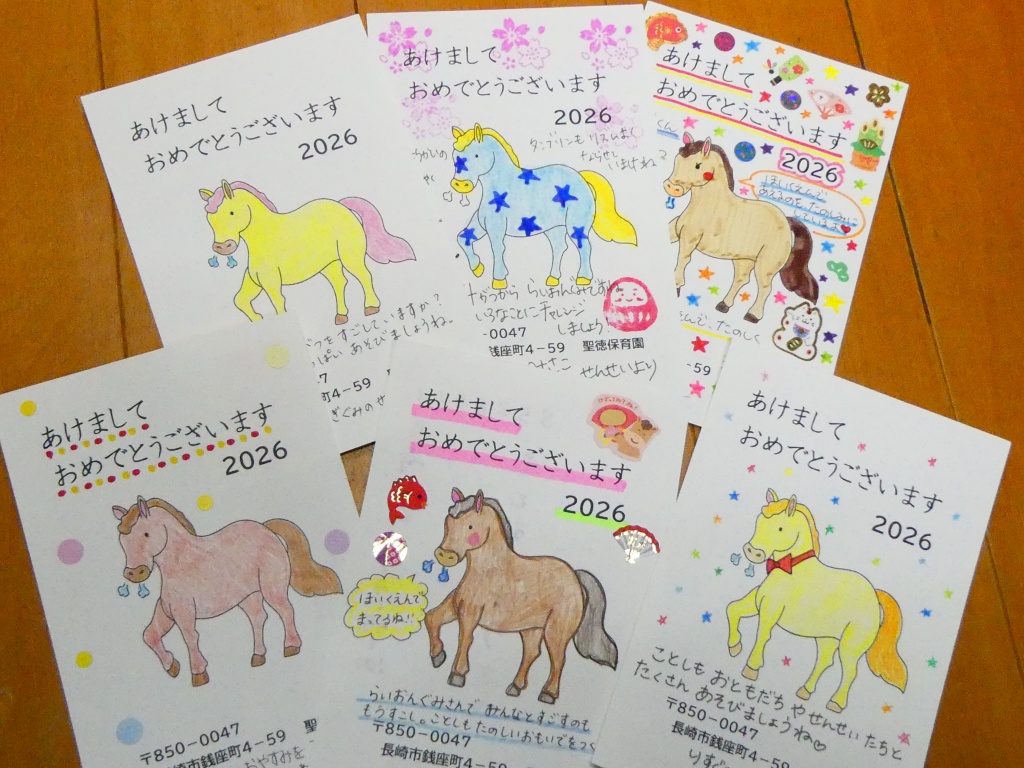 あけまして
おめでとうございます
2026
つをすごして、いますか？
っぱい あそびましょうね。
町4-59
ぎぐみのせ
あけまして
おめでとうございます
2026
タンブリンも リズムよく
ならせて
いますね
ちかいの
十がつから らいおんぐみですね。
いろなことに チャレンジ
しましょう!
-0047
銭座町4-59 聖徳保育園
せんせいより
あけまして
おめでとうございます
2026
ほいくえんで
あえるのを、たのしみに
しています
んで、たのしく
-59
あけまして
おめでとうございます
2026
〒850-0047 聖
長崎市銭座町4-59
おやすみを
あけまして
おめでとうございます
2026
ほいくえんで
まってるね!!
らいおんぐみさんで みんなとすごすのも
もうすこし。ことしも たのしいおもいでをつく
〒850-0047
長崎市銭座町4-59
あけまして
おめでとうございます
2026
ことしも おともだち や せんせい たちと
たくさん あそびましょうね♡
〒850-0047
長崎市銭座町4-59
りすぐ